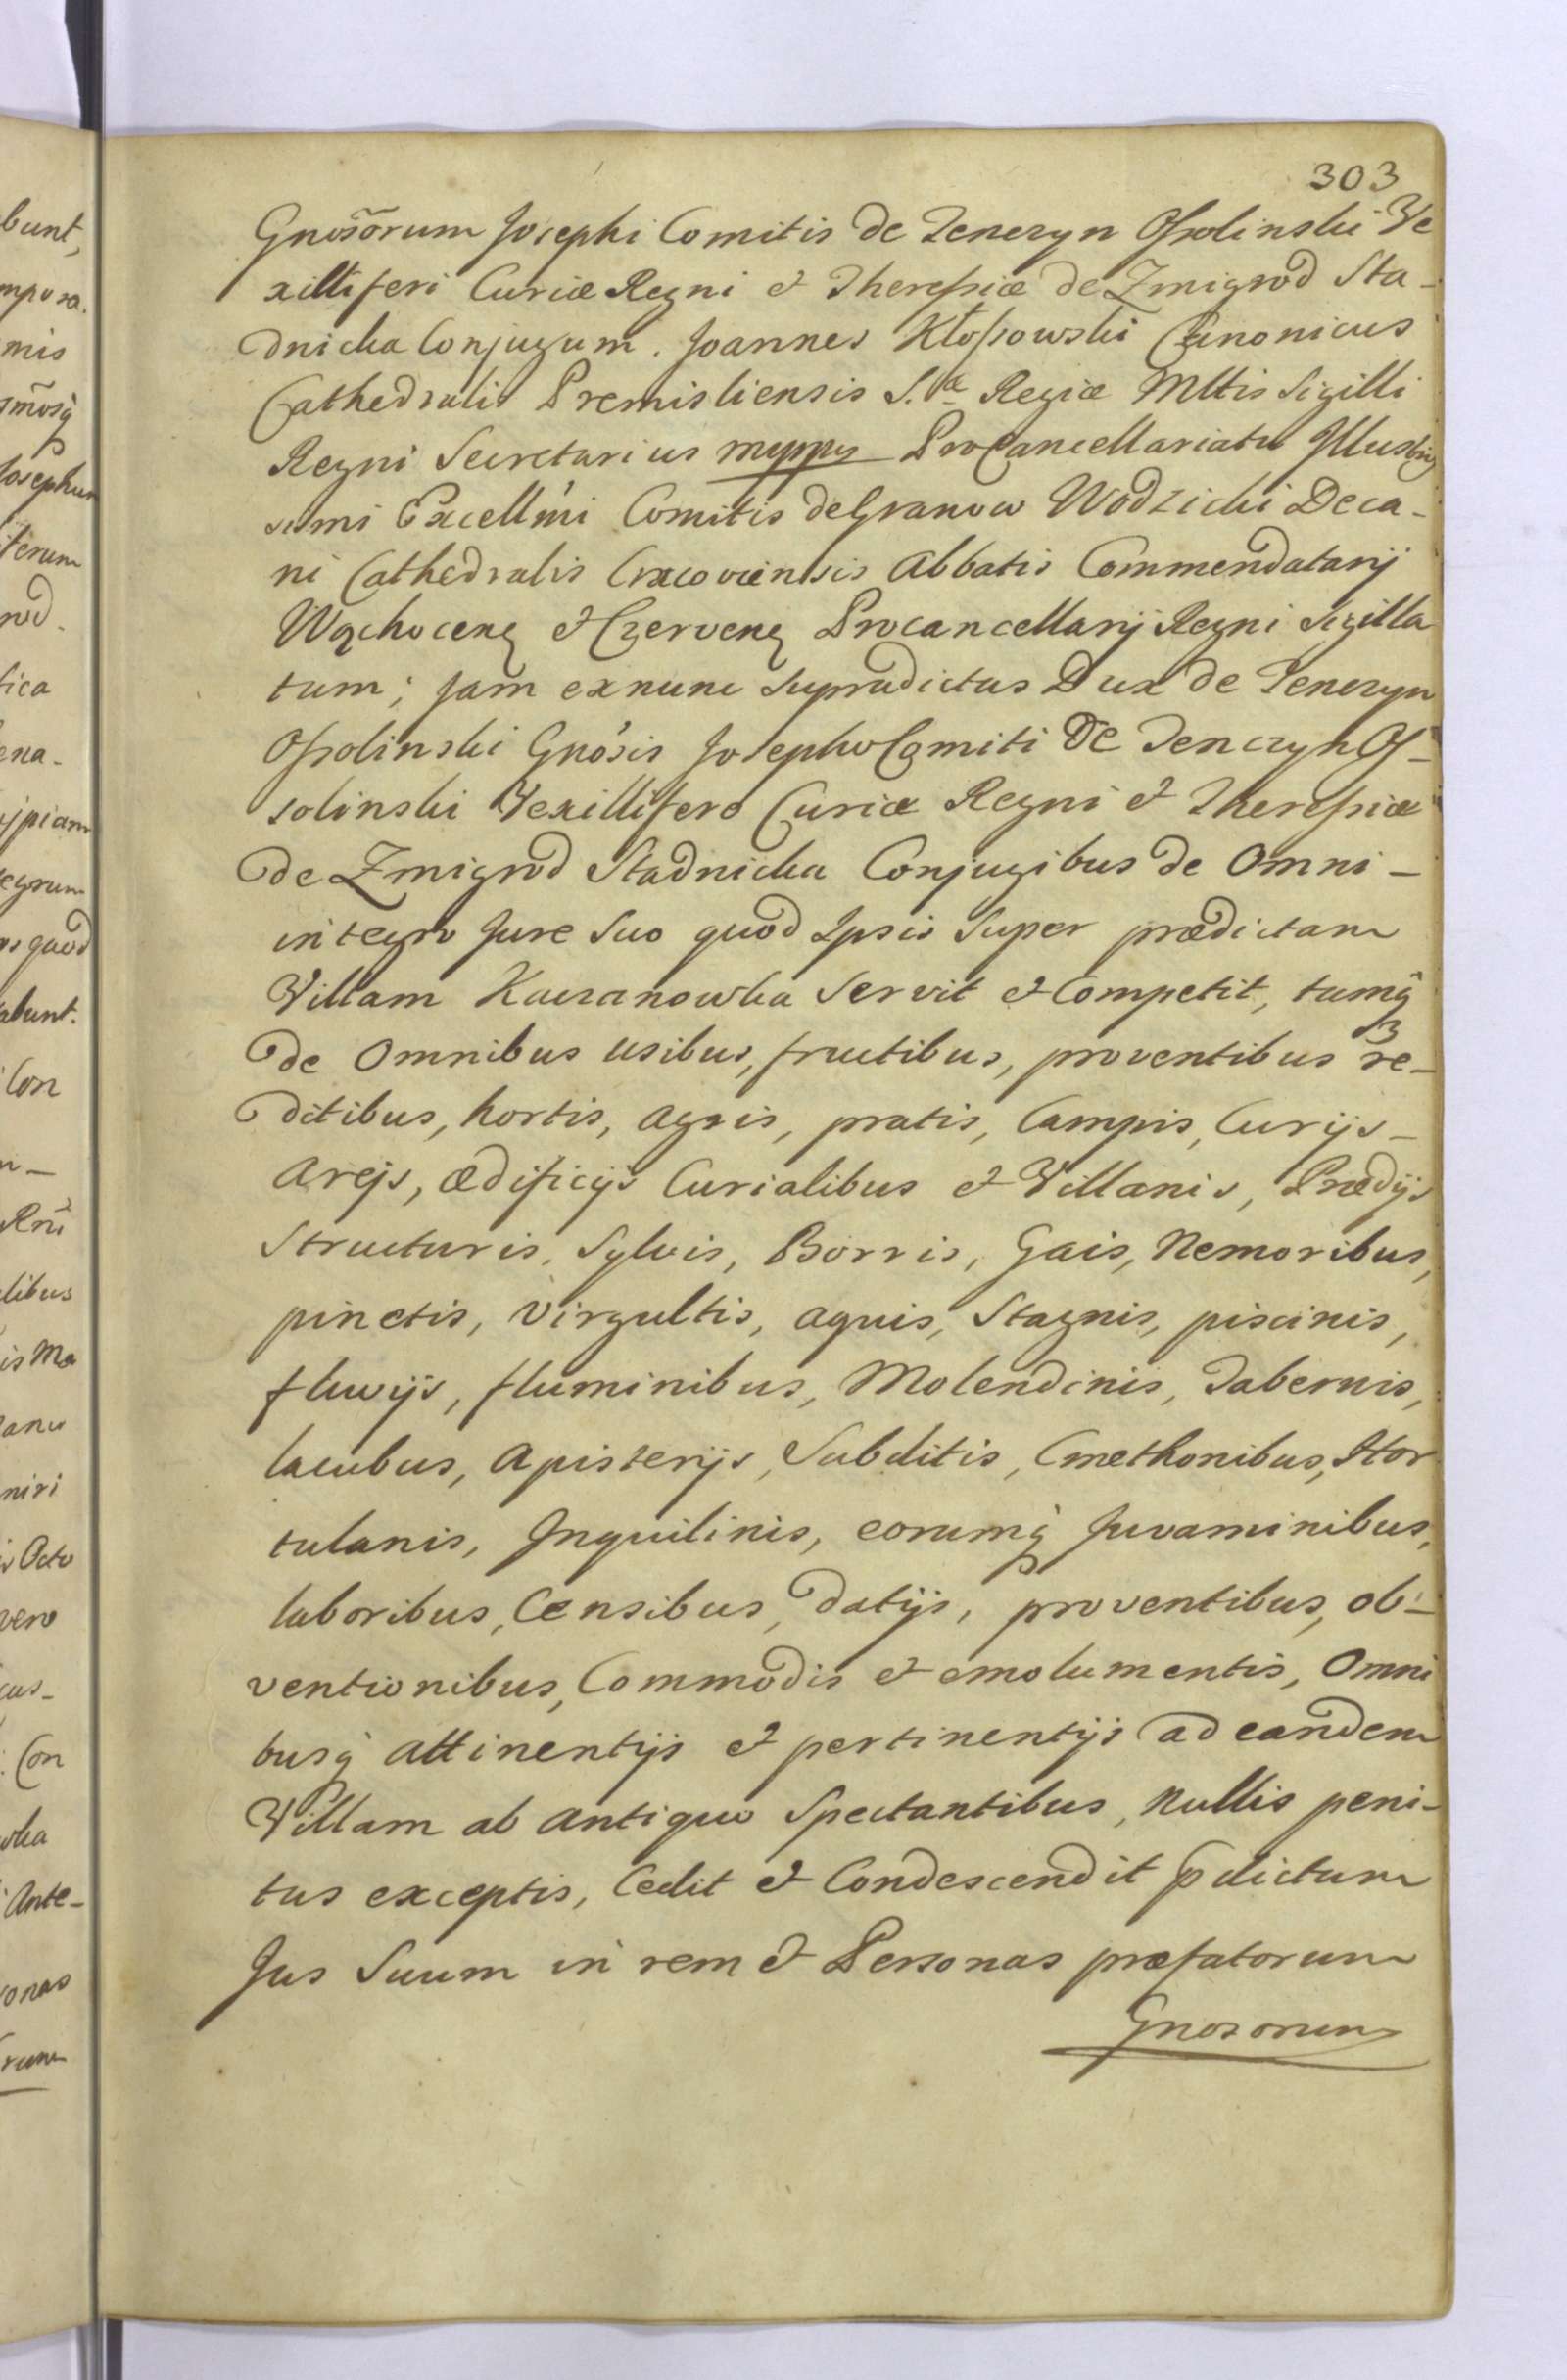 303
Gnosorum Josephi Comitis de Tenczyn Ossolinski Ve
xilliferi Curiæ Regni et Theressiæ de Zmigrod Sta-
dnicka Conjugum. Joannes Kłossowski Canonicus
Cathedralis Premisliensis S.æ Regiæ Mttis Sigilli
Regni Secretarius mppp ProCancellariatu Illustris
simi Excellmi Comitis de Granow Wodzicki Deca-
ni Cathedralis Cracoviensis Abbatis Commendatarij
Wąchocen et Czervenen Procancellarij Regni Sigilla
tum; jam exnunc supradictus Dux de Tenczyn
Ossolinski Gnosis Josepho Comiti de Tenczyn Os-
solinski Vexillifero Curiæ Regni et Theressiæ
de Zmigrod Stadnicka Conjugibus de Omni-
integro Jure Suo quod Ipsis Super prædictam
Villam Kaczanowka Servit et Competit, tumq
de Omnibus usibus, fructibus, proventibus re-
ditibus, hortis, agris, pratis, Campis, Curijs-
Arejs, ædificijs Curialibus et Villanis, Prædijs
Structuris, Sylvis, Borris, Gais, Nemoribus,
pinetis, Virgultis, aquis, Stagnis, piscinis,
fluvijs, fluminibus, Molendinis, Tabernis,
lacubus, Apisterijs, Subditis, Cmethonibus, Hor
tulanis, Inquilinis, eorumq Juvaminibus,
laboribus, Censibus, datijs, proventibus, ob-
ventionibus, Commodis et emolumentis, Omni
busq attinentijs et pertinentijs ad eandem
Villam ab antiquo Spectantibus, Nullis peni-
tus exceptis, Cedit et Condescendit pdictum
Jus Suum in rem et Personas præfatorum
Gnosorum